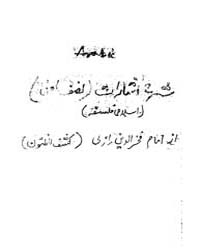 Arabic
شرح اشارات (نصف اول)
(اسلامی فلسفہ)
از امام فخرالدین رازی (کشف الظنون)